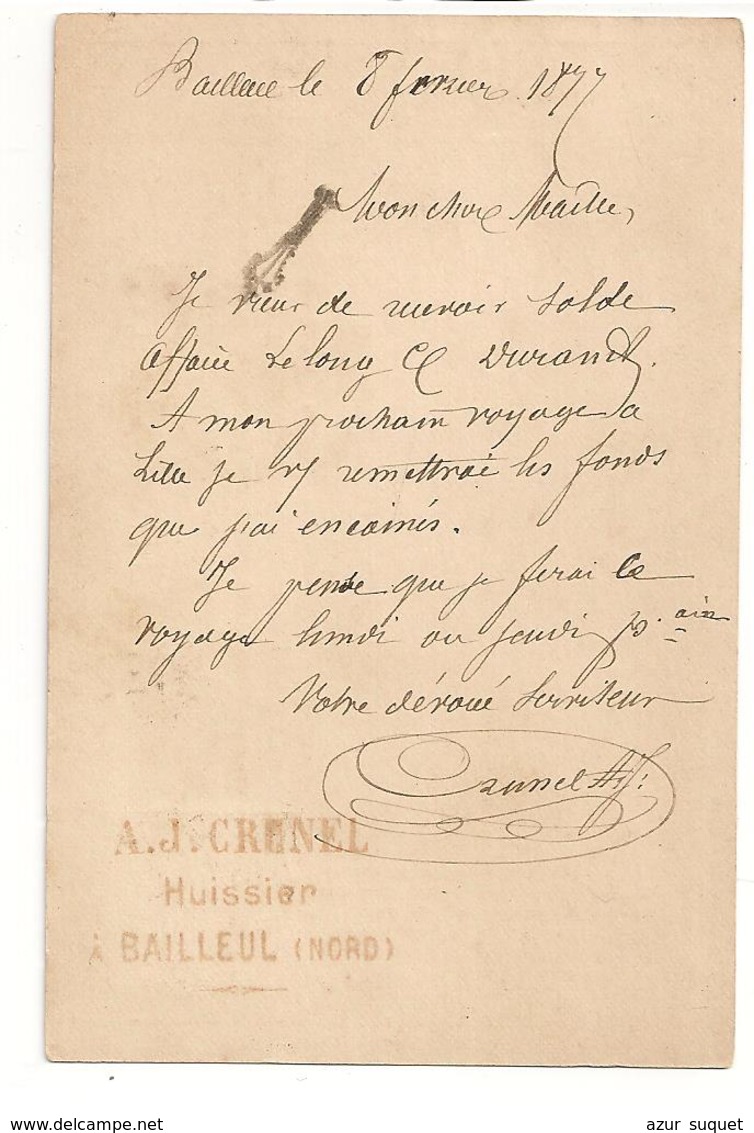 Bailleul le 8 février 1877
Mon cher Maître,
Je viens de recevoir solde
affaire Lelong C Durand.
A mon prochain voyage a
Lille je vs remettrai les fonds
que j'ai encaissés.
Je pense que je ferai le
voyage lundi ou jeudi p.ain
Votre dévoué serviteur
Crunel AJ:
A.J. CRUNEL
Huissier
à BAILLEUL (NORD)
azur suquet